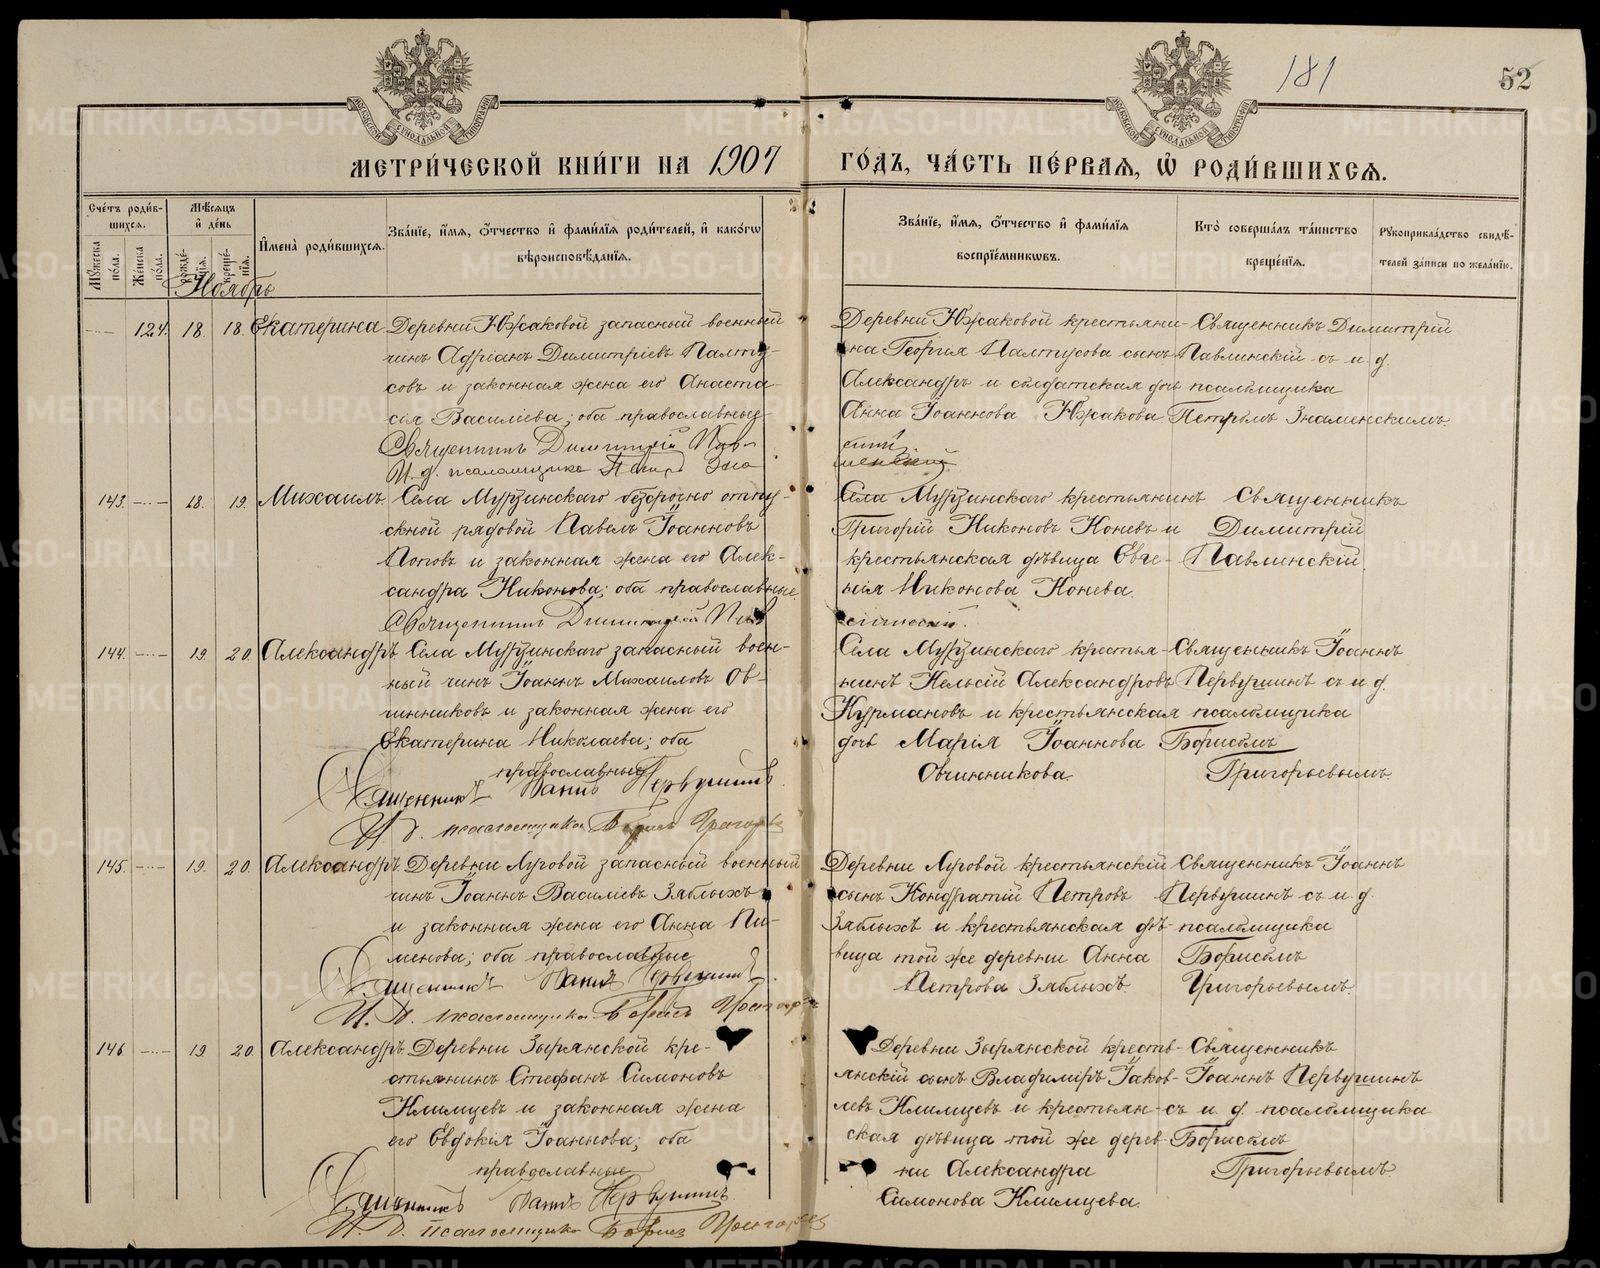 181
52
МЕТРИ́ЧЕСКОЙ КНИ́ГИ НА 1907
ГО́ДЪ, ЧА́СТЬ ПЕ́РВАЯ, Ѡ҆ РОДИ́ВШИХСѦ.
Сче́тъ роди́в-
шихсѧ.
Мꙋ́жеска по́ла.
Же́нска по́ла.
Мѣ́сяцъ
и҆ де́нь
рожде́-
нїѧ.
креще́-
нїѧ.
И҆мена̀ роди́вшихсѧ.
Зва́нїе, и҆́мѧ, ѻ҆́тчество и҆ фами́лїѧ роди́телей, и҆ како́гѡ
вѣроисповѣ́данїѧ.
Зва́нїе, и҆́мѧ, ѻ҆́тчество и҆ фами́лїѧ
воспрїе́мникѡвъ.
Кто̀ соверша́лъ та́инство
креще́нїѧ.
Рꙋкоприкла́дство свидѣ́-
телей за́писи по жела́нїю.
Ноябрь
124. 18. 18. Екатерина
Деревни Южаковой запасный военный
чинъ Адріанъ Димитріевъ Палту-
совъ и законная жена его Анаста-
сія Василіева; оба православные
Священникъ Димитрій Пав-
И. д. псаломщика Петръ Зна
Деревни Южаковой крестьяни-
на Георгія Палтусова сынъ
Александръ и солдатская дочь
Анна Іоаннова Южакова
Священникъ Димитрій
Павлинскій съ и. д.
псаломщика
Петромъ Знаменскимъ.
менскій
143. 18. 19. Михаилъ.
Села Мурзинскаго безсрочно отпу-
скной рядовой Павелъ Іоанновъ
Поповъ и законная жена его Алек-
сандра Никонова; оба православные.
Священникъ Димитрій Пав
Села Мурзинскаго крестьянинъ
Григорій Никоновъ Коневъ и
крестьянская дѣвица Евге-
нія Никонова Конева.
Священникъ
Димитрій
Павлинскій.
144. 19. 20. Александръ
Села Мурзинскаго запасный воен-
ный чинъ Іоаннъ Михаиловъ Ов-
чинниковъ и законная жена его
Екатерина Николаева; оба
православные
Священникъ Іоаннъ Первушинъ
И. д. псаломщика Борисъ Григорьев
Села Мурзинскаго крестья-
нинъ Кельсій Александровъ
Курмановъ и крестьянская
дочь Марія Іоаннова
Овчинникова.
Священникъ Іоаннъ
Первушинъ съ и. д.
псаломщика
Борисомъ
Григорьевымъ.
145. 19. 20. Александръ
Деревни Луговой запасный военный
чинъ Іоаннъ Василіевъ Зяблыхъ
и законная жена его Анна Пи-
менова; оба православные
Священникъ Іоаннъ Первушинъ
И. д. псаломщика Борисъ Григорьев
Деревни Луговой крестьянскій
сынъ Кондратій Петровъ
Зяблыхъ и крестьянская дѣ-
вица той же деревни Анна
Петрова Зяблыхъ.
Священникъ Іоаннъ
Первушинъ съ и. д.
псаломщика
Борисомъ
Григорьевымъ.
146 19 20. Александръ.
Деревни Зырянской кре-
стьянинъ Стефанъ Симоновъ
Климцевъ и законная жена
его Евдокія Іоаннова; оба
православные
Священникъ Іоаннъ Первушинъ
И. д. псаломщика Борисъ Григорьев
Деревни Зырянской кресть-
янскій сынъ Владиміръ Іаков-
левъ Климцевъ и крестьян-
ская дѣвица той же дерев-
ни Александра
Симонова Климцева.
Священникъ
Іоаннъ Первушинъ
съ и. д. псаломщика
Борисомъ
Григорьевымъ.
METRIKI.GASO-URAL.RU